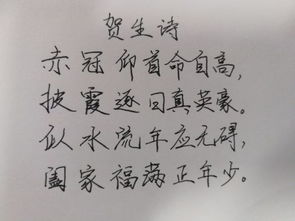 贺生诗
赤冠仰首命自高,
披霞逐日真英豪。
似水流年应无碍,
阖家福满正年少。